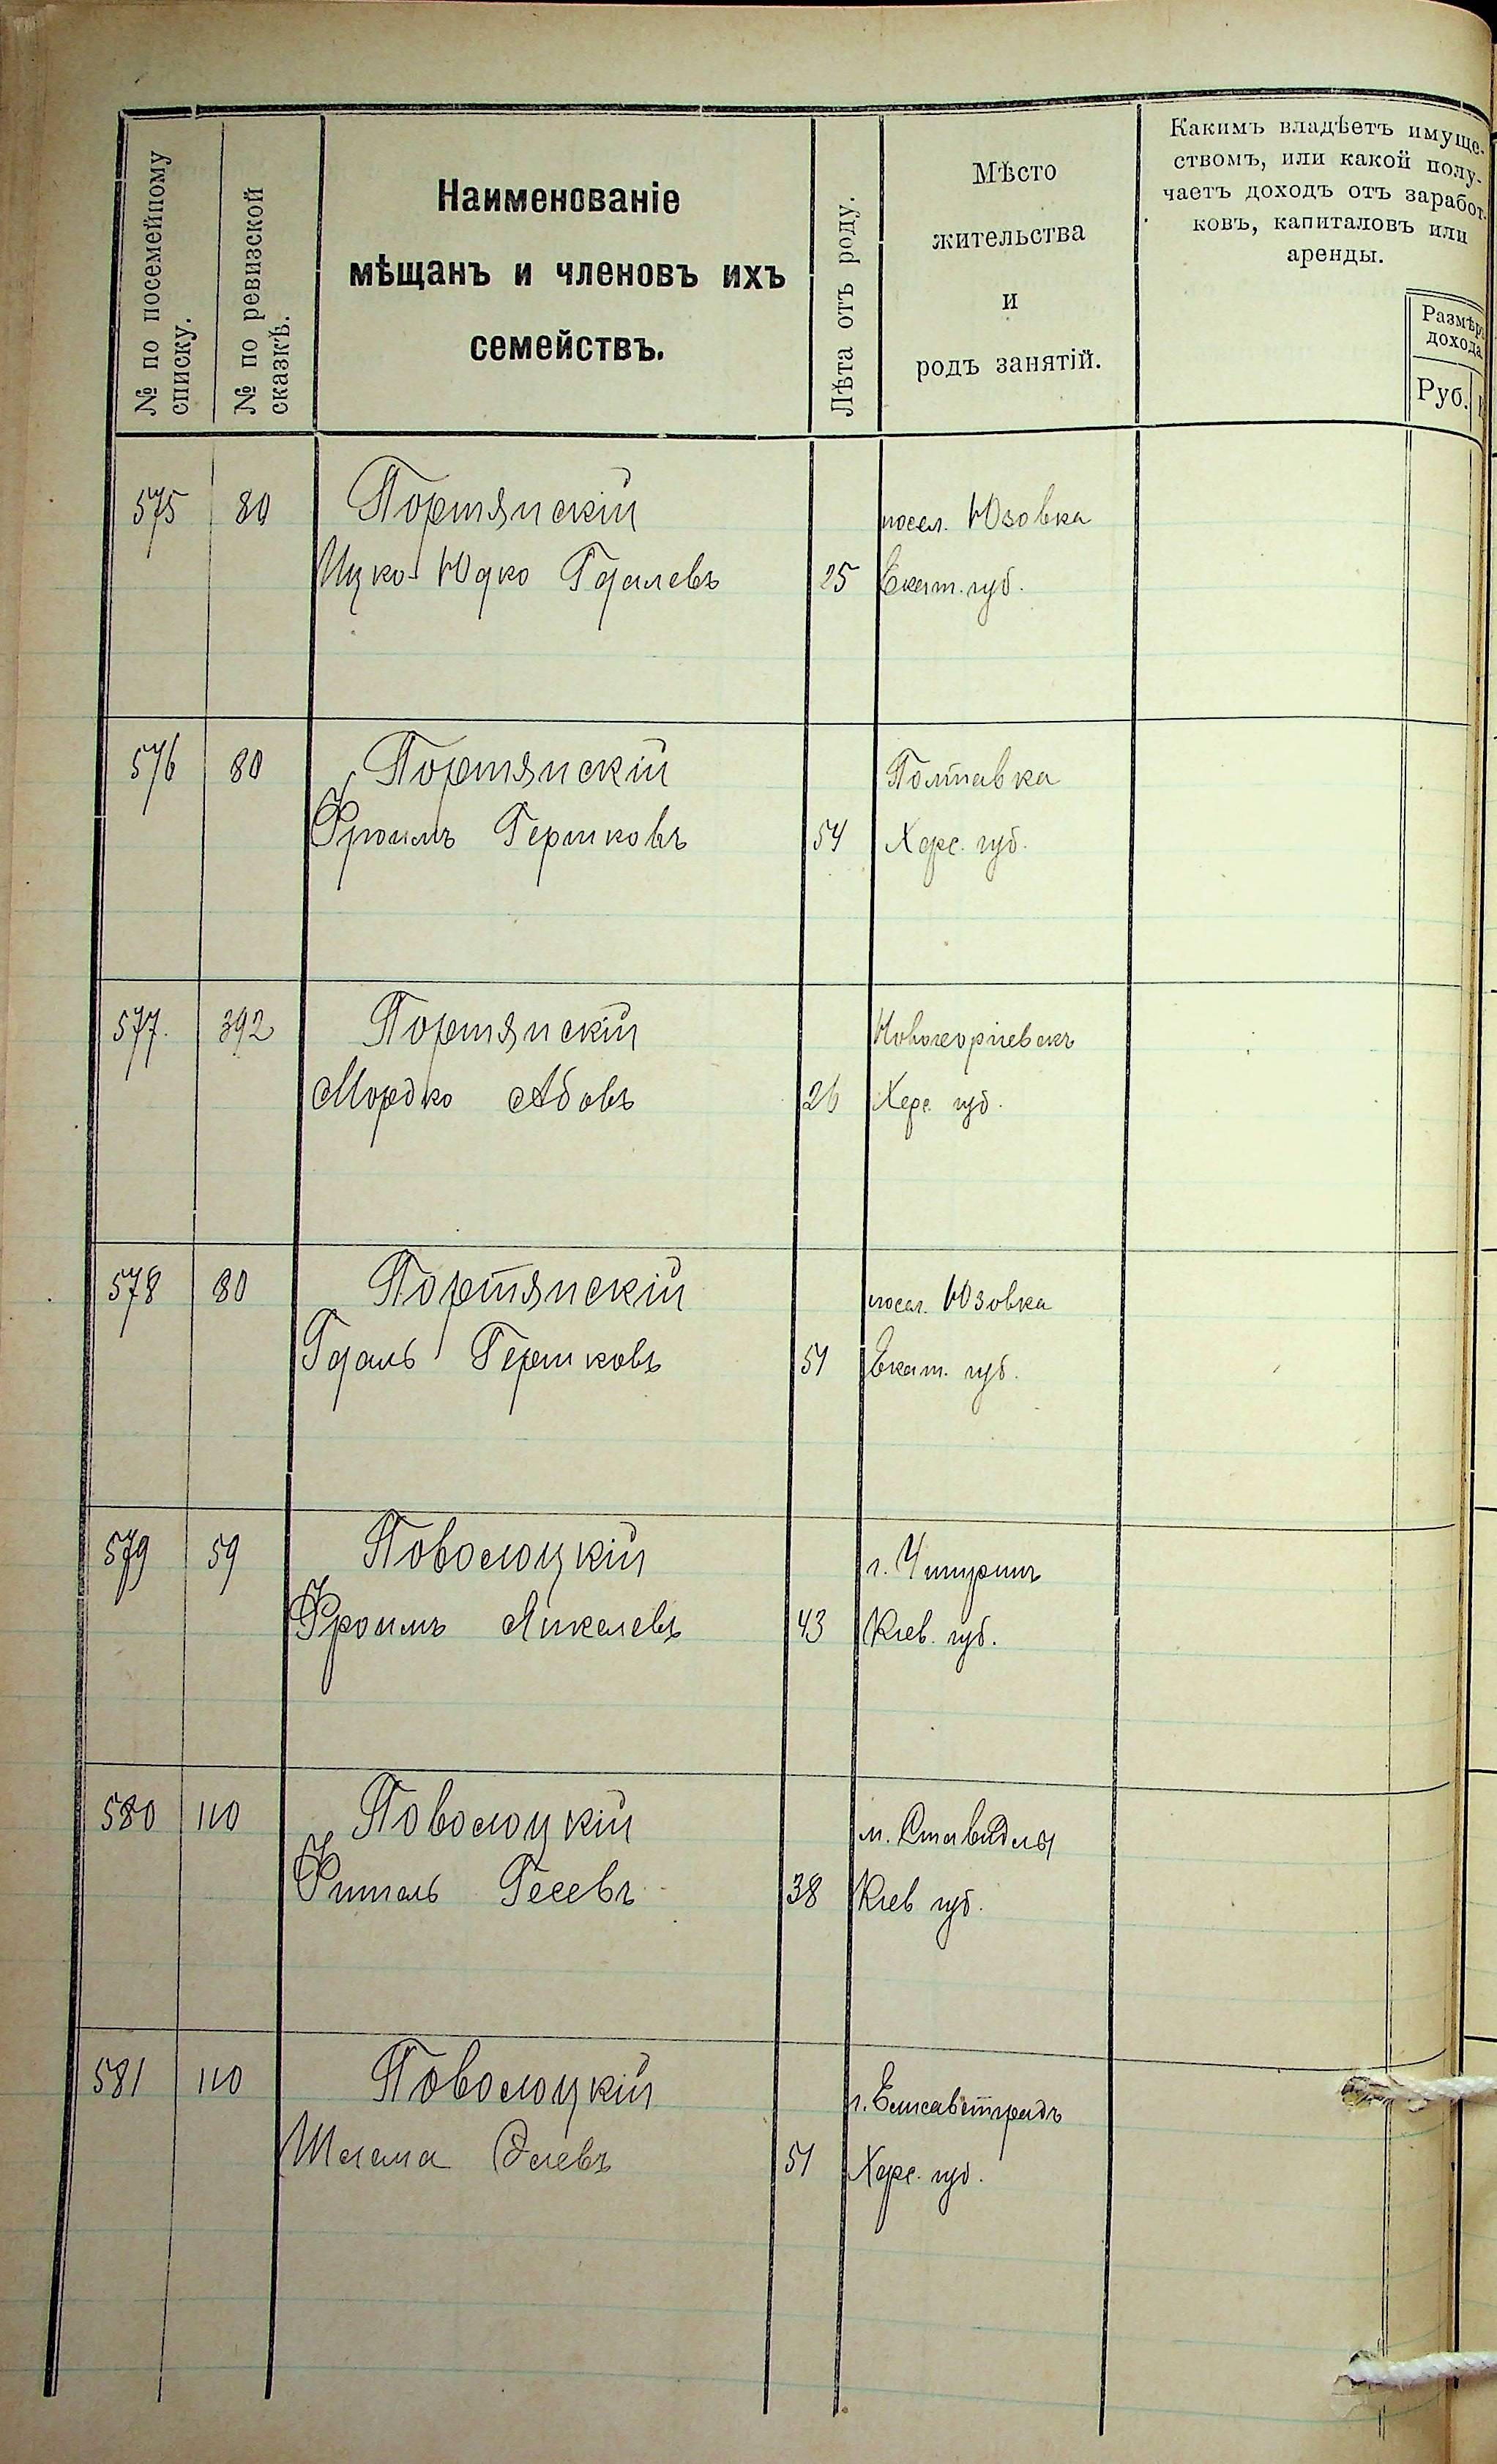 № по посемейному
списку.
№ по ревизской
сказкѣ.
Наименованіе
мѣщанъ и членовъ ихъ
семействъ.
Лѣта отъ роду.
Мѣсто
жительства
и
родъ занятій.
Какимъ владѣетъ имуще-
ствомъ, или какой полу-
чаетъ доходъ отъ заработ-
ковъ, капиталовъ или
аренды.
Размѣръ
дохода
Руб.
575 80 Портянскій посел. Юзовка
Ицко-Юдко Гдалевъ 25 Екат. губ.
576 80 Портянскій Полтавка
Фроимъ Гершковъ 54 Херс. губ.
577. 392 Портянскій Новогеоргіевскъ
Мордко Абовъ 26 Херс. губ.
578 80 Портянскій посел. Юзовка
Гдаль Гершковъ 51 Екат. губ.
579 59 Поволоцкій г. Чигиринъ
Фроимъ Янкелевъ 43 Кіев. губ.
580 110 Поволоцкій м. Ставидлы
Фишель Гесевъ 38 Кіев губ.
581 110 Поволоцкій г. Елисаветградъ
Шлема 51 Херс. губ.